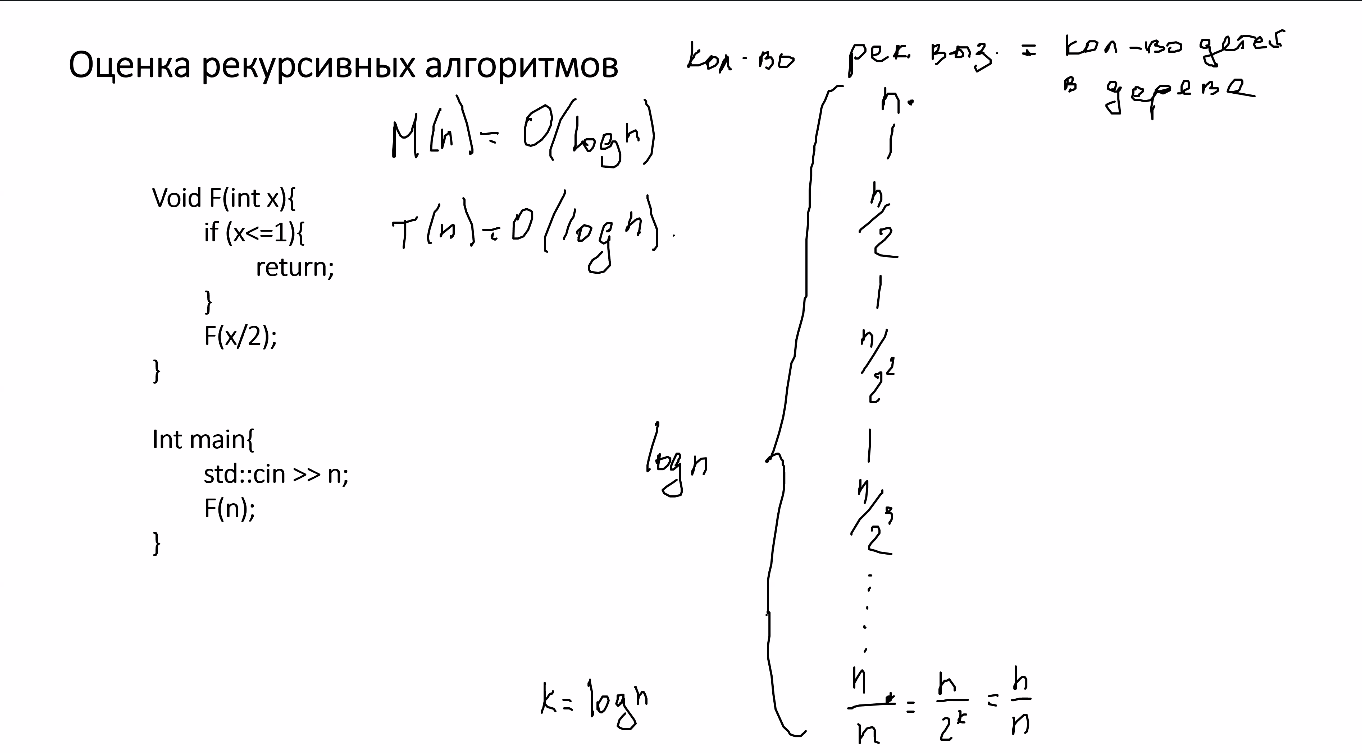 Оценка рекурсивных алгоритмов
кол-во рек выз. = кол-во детей
в дерева
M(n) = O(log n)
T(n) = O(log n).
Void F(int x){
if (x<=1){
return;
}
F(x/2);
}
Int main{
std::cin >> n;
F(n);
}
n.
n/2
n/2²
n/2³
log n
k = log n
n/n = n/2ᵏ = n/n